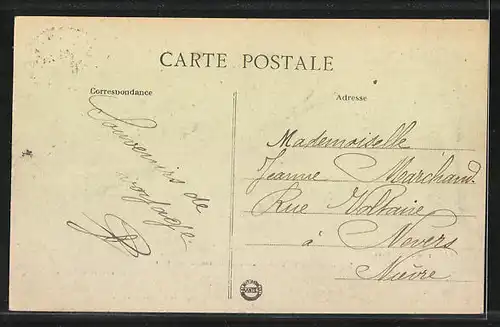 CARTE POSTALE
Correspondance
Adresse
Souvenirs de
voyage
Mademoiselle
Jeanne Marchand
Rue Voltaire
à Nevers
Nièvre